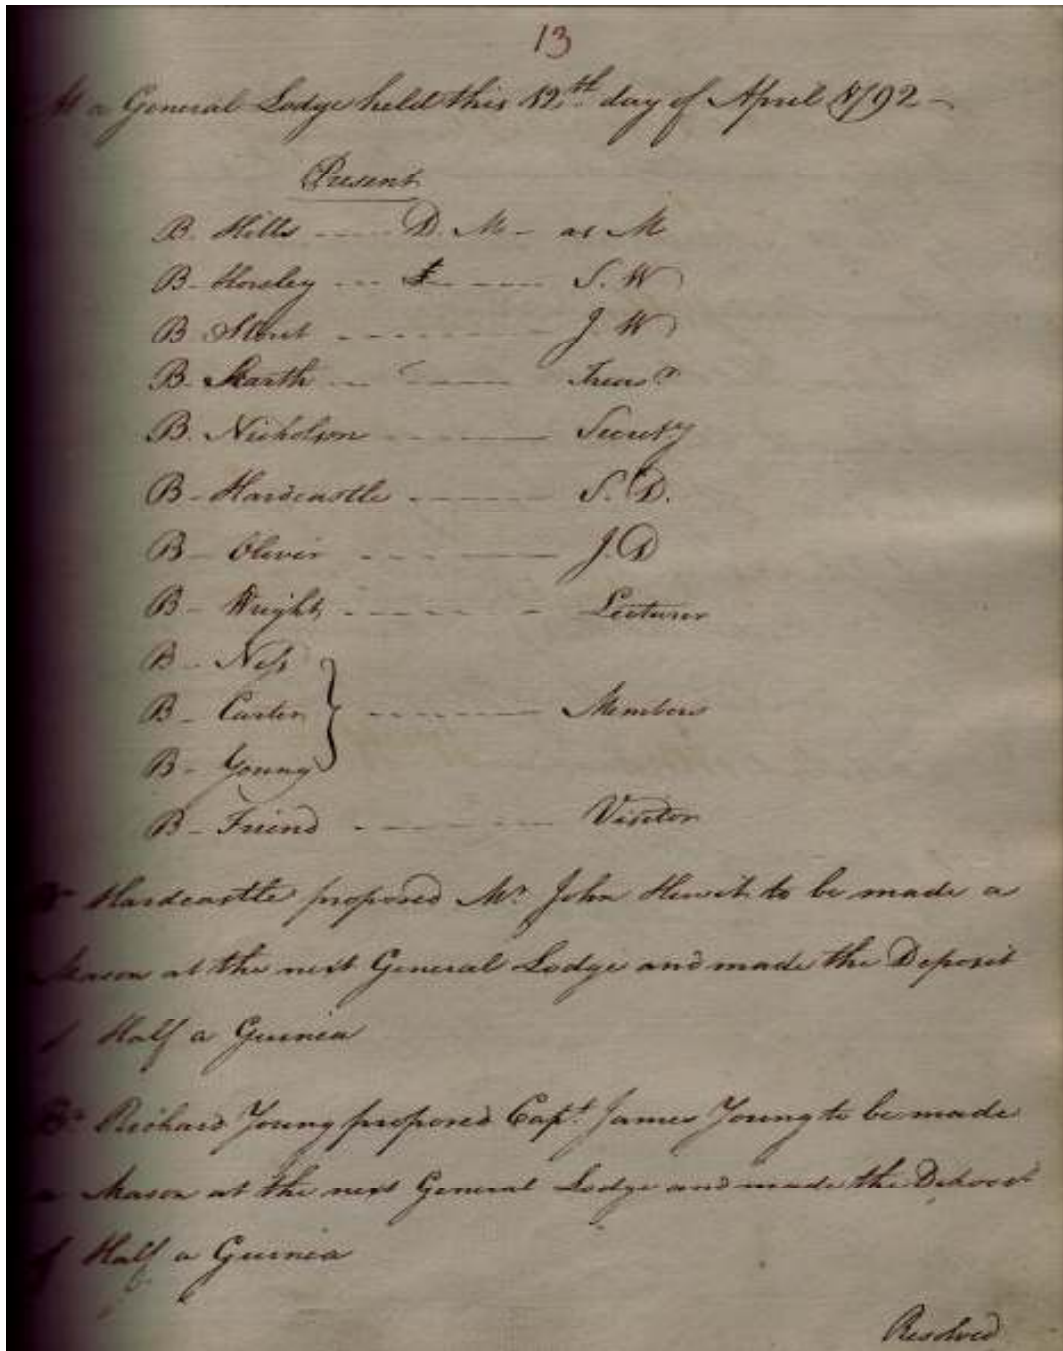 13
At a General Lodge held this 12th day of April 1792 –
Present
B. Hills ---- D. M – as M
B – Horsley --- ---- S. W
B Stout --------- J. W
B. Skarth --- ---- Treasr
B. Nicholson -------- Secrety
B – Hardcastle ------ S. D.
B – Oliver --------- J. D
B – Wright -------- Lecturer
B – Neſs
B – Carter } -------- Members
B – Young
B – Friend -------- Visitor
Br Hardcastle proposed Mr John Hewit to be made a
Mason at the next General Lodge and made the Deposit
of Half a Guinea
Br Richard Young proposed Capt James Young to be made
a Mason at the next General Lodge and made the Deposit
of Half a Guinea
Resolved